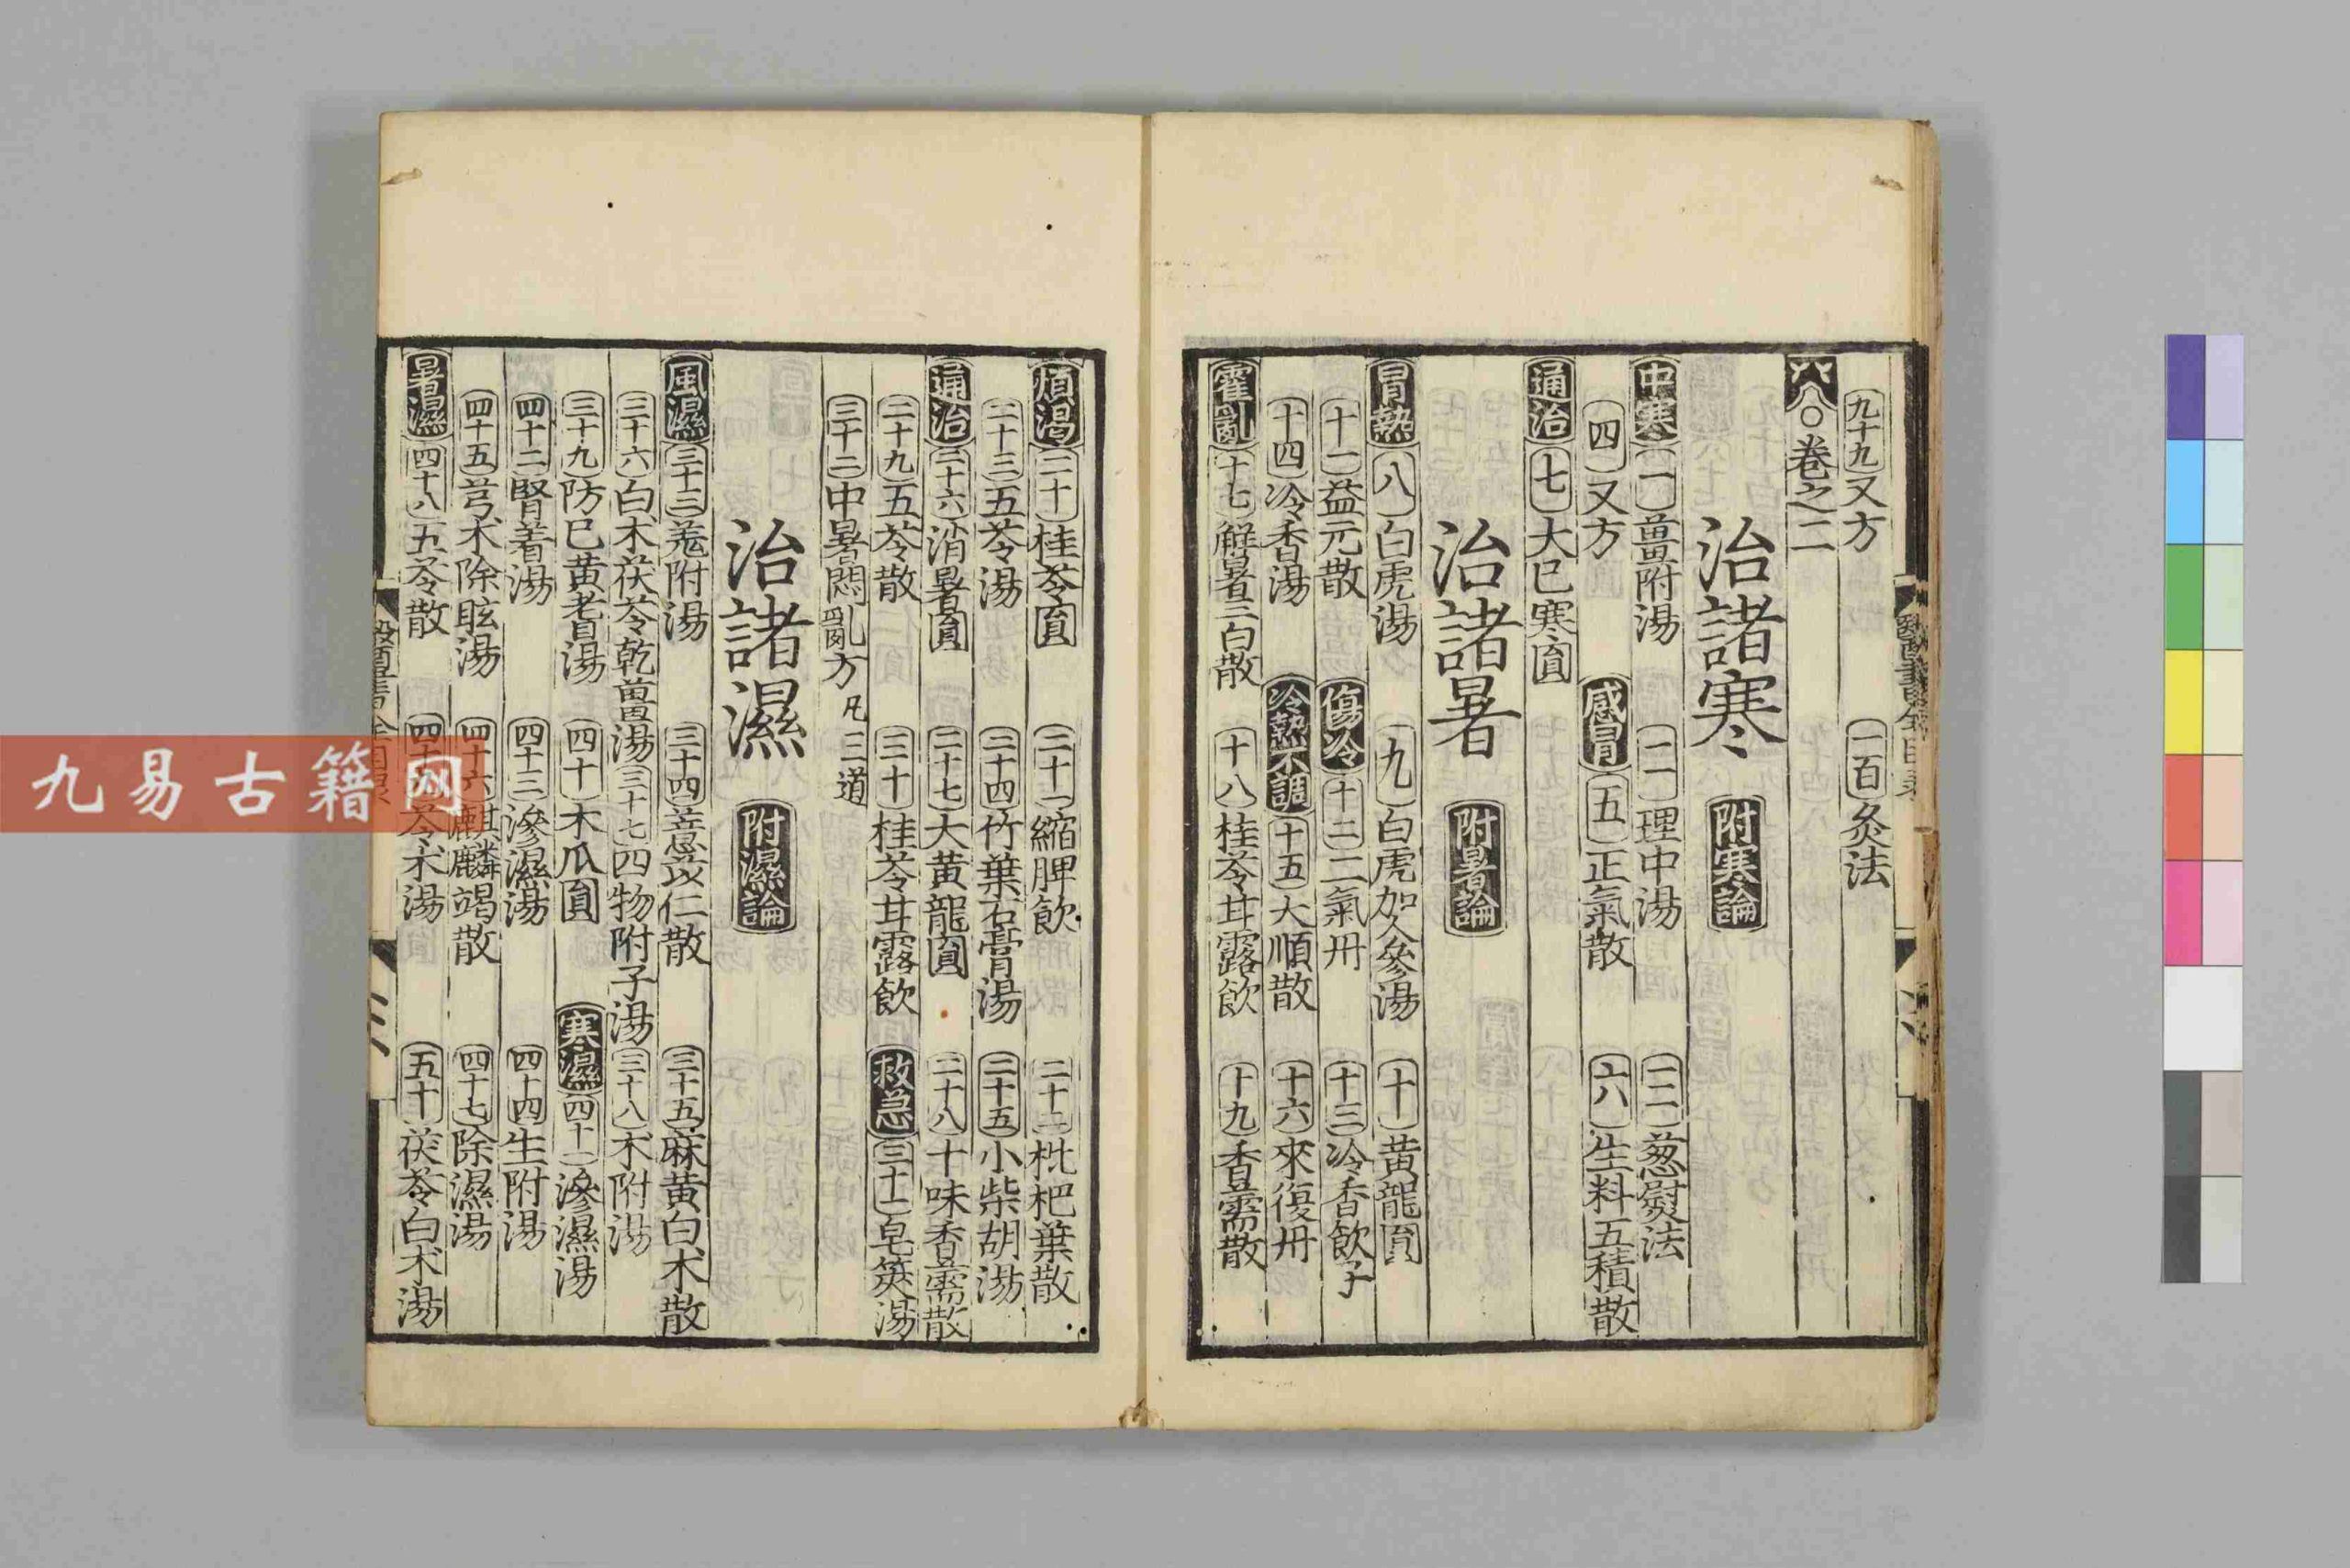 九十九又方 一百灸法
八〇卷之二
治諸寒 附寒論
中寒 一薑附湯 二理中湯 三葱熨法
四又方 感冒 五正氣散 六生料五積散
通治 七大已寒圓
治諸暑 附暑論
冒熱 八白虎湯 九白虎加人參湯 十黃龍圓
十一益元散 傷冷 十二二氣丹 十三冷香飲子
十四冷香湯 冷熱不調 十五大順散 十六來復丹
霍亂 十七解暑三白散 十八桂苓甘露飲 十九香薷散
煩渴 二十桂苓圓 二十一縮脾飲 二十二枇杷葉散
二十三五苓湯 二十四竹葉石膏湯 二十五小柴胡湯
通治 二十六消暑圓 二十七大黃龍圓 二十八十味香薷散
二十九五苓散 三十桂苓甘露飲 救急 三十一皂莢湯
三十二中暑悶亂方 凡三道
治諸濕 附濕論
風濕 三十三羗附湯 三十四薏苡仁散 三十五麻黃白朮散
三十六白朮茯苓乾薑湯 三十七四物附子湯 三十八朮附湯
三十九防已黃耆湯 四十木瓜圓 寒濕 四十一滲濕湯
四十二腎着湯 四十三滲濕湯 四十四生附湯
四十五芎朮除眩湯 四十六麒麟竭散 四十七除濕湯
暑濕 四十八五苓散 四十九苓朮湯 五十茯苓白朮湯
九易古籍网